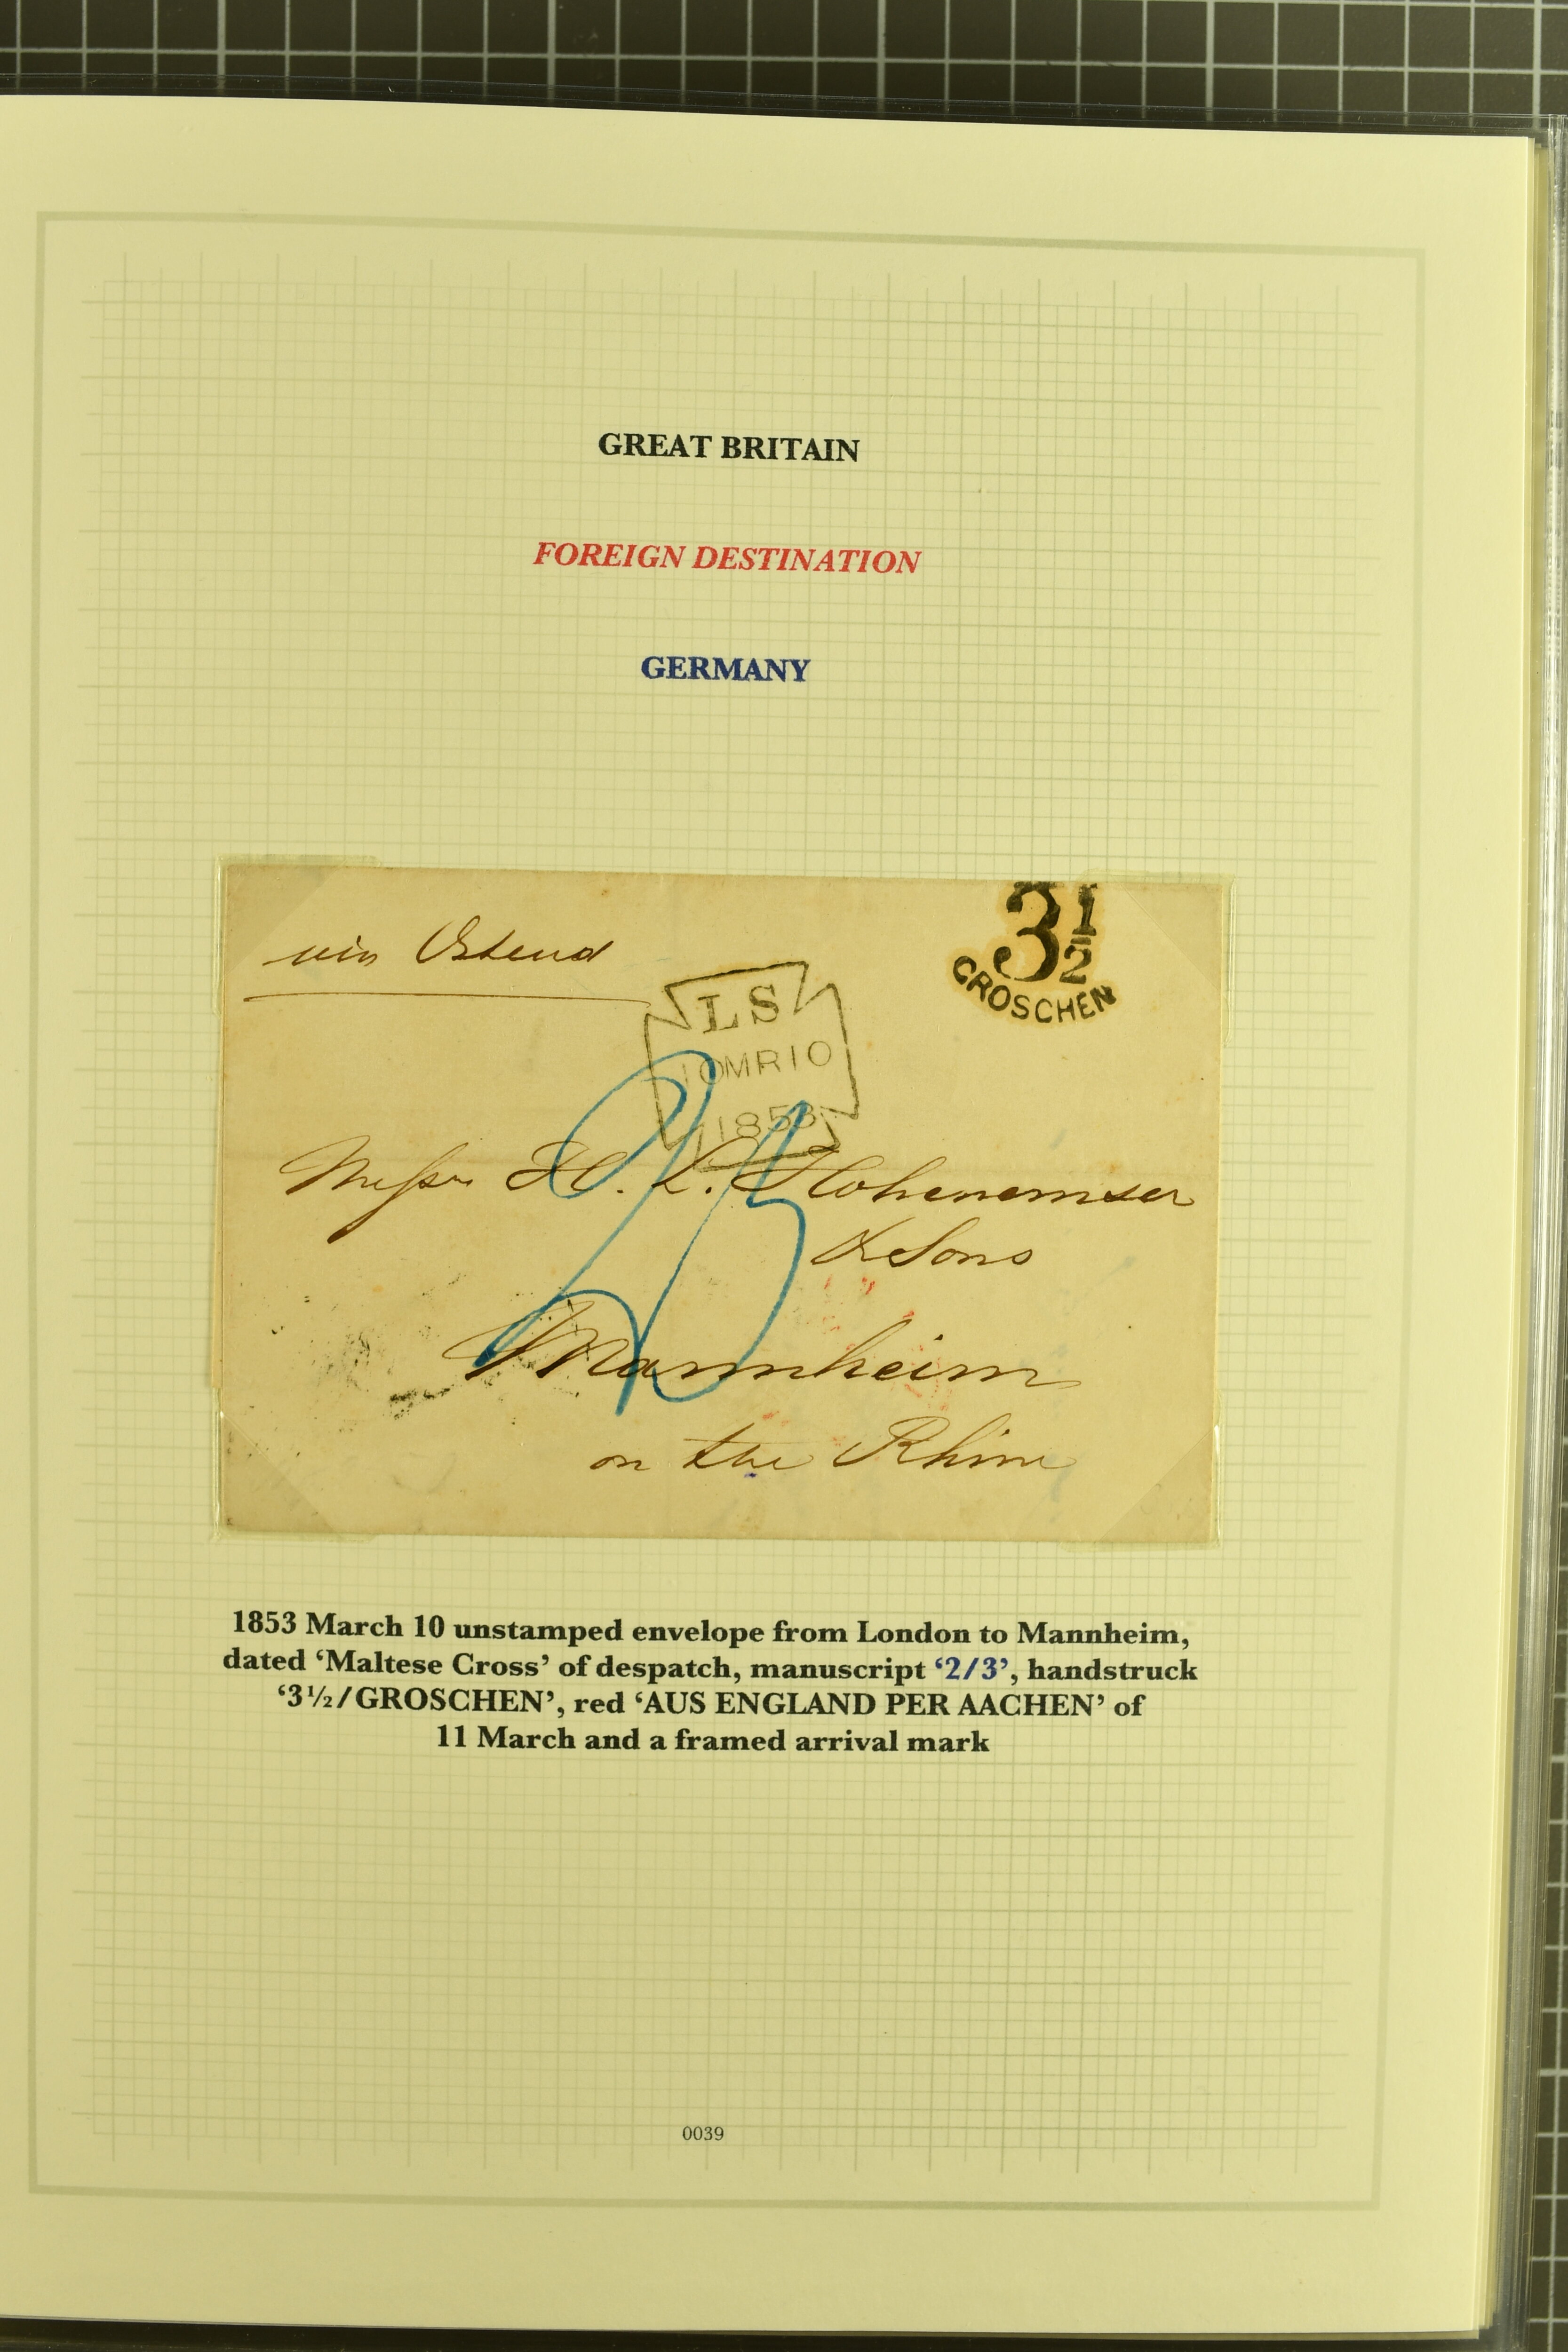 GREAT BRITAIN
FOREIGN DESTINATION
GERMANY
via Ostend
3 1/2
GROSCHEN
LS
10MR10
1853
Messrs H. L. Hohenemser
& Sons
Mannheim
on the Rhine
1853 March 10 unstamped envelope from London to Mannheim,
dated ‘Maltese Cross’ of despatch, manuscript ‘2/3’, handstruck
‘3½/GROSCHEN’, red ‘AUS ENGLAND PER AACHEN’ of
11 March and a framed arrival mark
0039